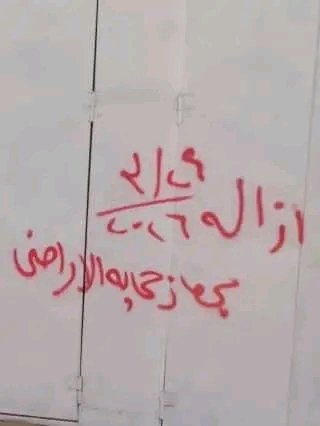 ازاله ٣/٢٩
٢٠٢٦
جهاز حمايه الاراضى